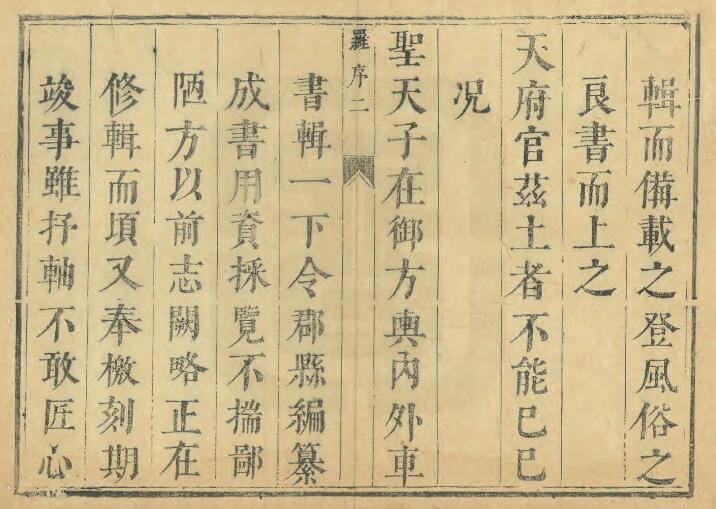 輯而備載之登風俗之
良書而上之
天府官茲土者不能已已
况
聖天子在御方輿內外車
羅序二
書輯一下令郡縣編纂
成書用資採覽不揣鄙
陋方以前志闕略正在
修輯而頃又奉檄刻期
竣事雖抒軸不敢匠心